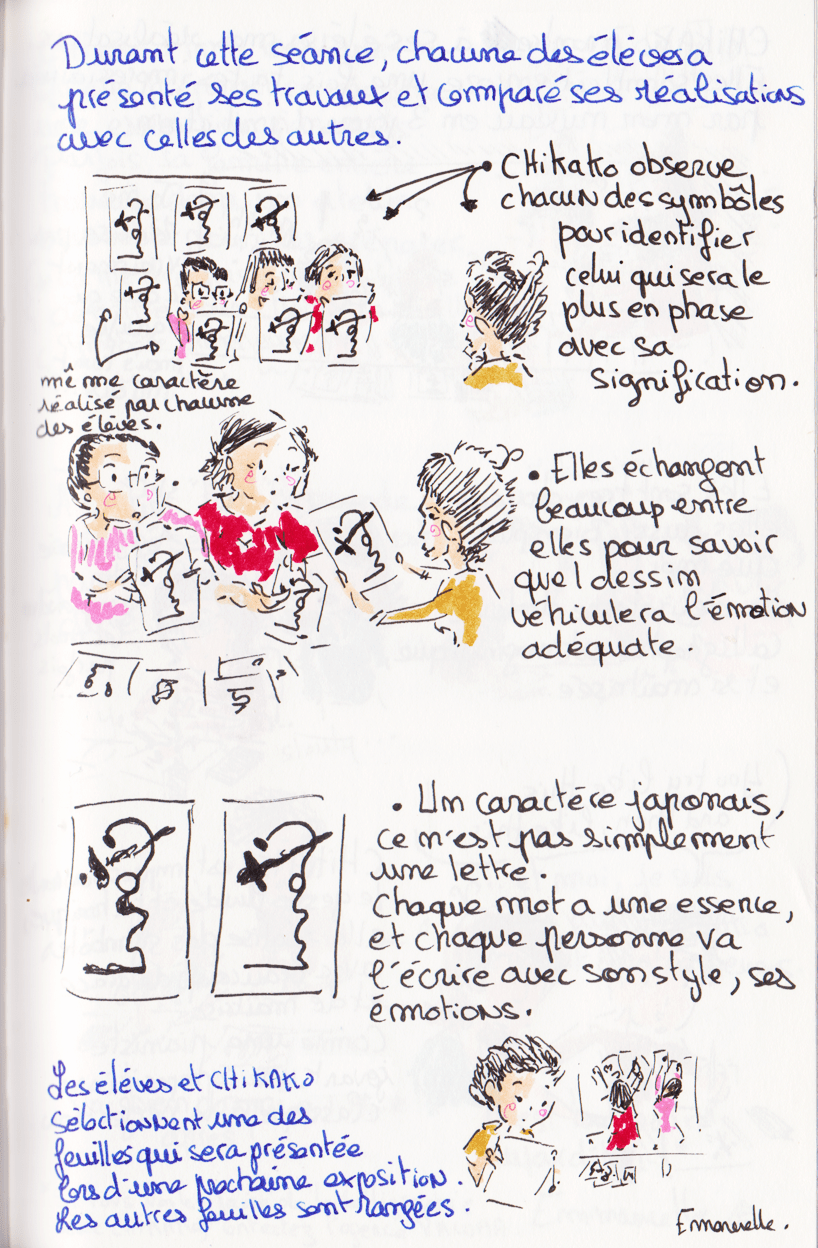 Durant cette séance, chacune des élèves a
présenté ses travaux et comparé ses réalisations
avec celles des autres.
CHiKAKO observe
chacun des symbôles
pour identifier
celui qui sera le
plus en phase
avec sa
signification.
même caractère
réalisé par chacune
des élèves.
• Elles échangent
beaucoup entre
elles pour savoir
quel dessin
véhiculera l'émotion
adéquate
• Un caractère japonais,
ce n'est pas simplement
une lettre.
Chaque mot a une essence,
et chaque personne va
l'écrire avec son style, ses
émotions.
Les élèves et CHiKAKO
sélectionnent une des
feuilles qui sera présentée
lors d'une prochaine exposition.
Les autres feuilles sont rangées.
Emmanuelle.